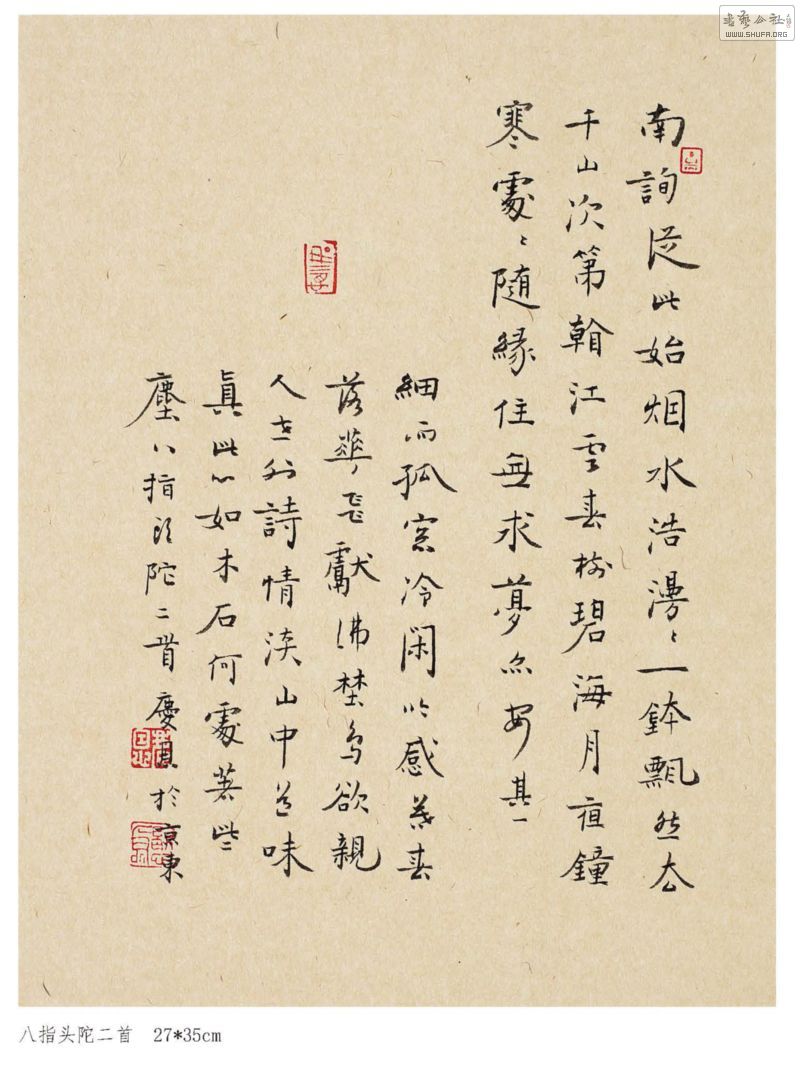 南詢從此始烟水浩漫〻一鉢飄然去
千山次第翰江雲春樹碧海月夜鐘
寒處〻隨緣住無求夢亦安其一
細雨孤窓冷閑吟感暮春
落華飛獻佛埜鳥欲親
人世外詩情淡山中道味
真此心如木石何處著些
塵八指頭陀二首慶真於京東
WWW.SHUFA.ORG
八指头陀二首 27*35cm